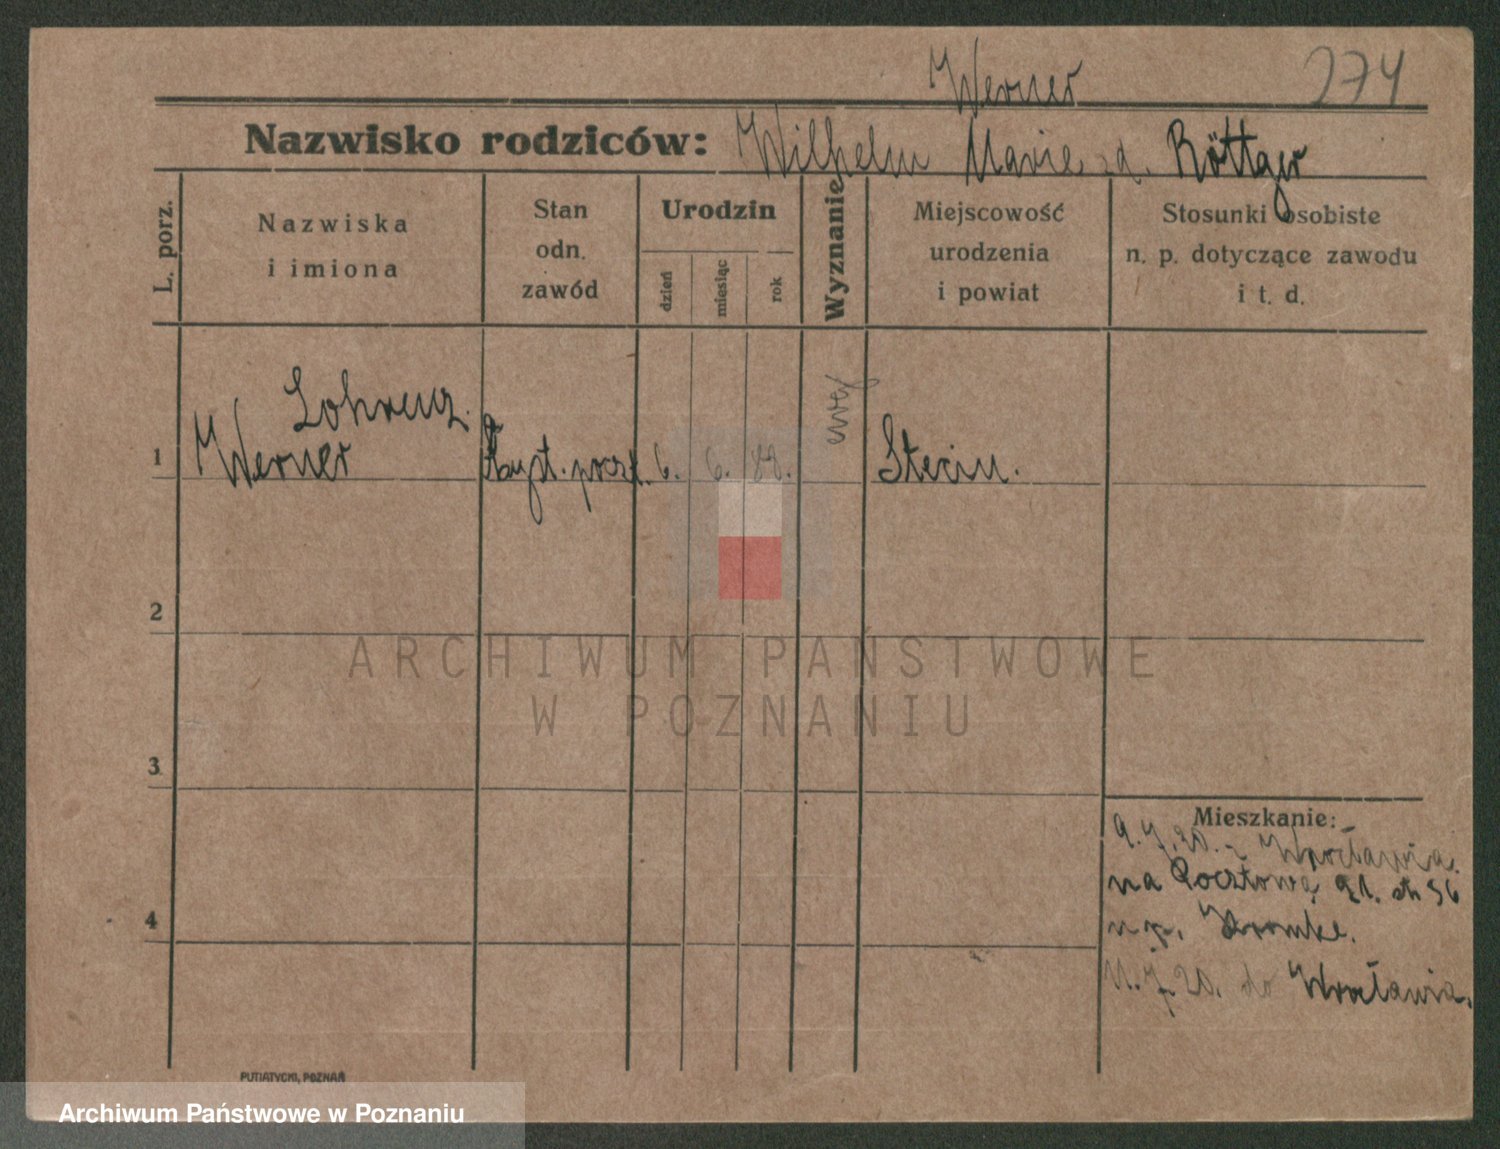 Werner 274
Nazwisko rodziców: Wilhelm Marie d. Röttger
L. porz.
Nazwiska
i imiona
Stan
odn.
zawód
Urodzin
dzień
miesiąc
rok
Wyznanie
Miejscowość
urodzenia
i powiat
Stosunki osobiste
n. p. dotyczące zawodu
i t. d.
Lohrenz.
1 Werner 6. 6. 88. ew.
2
3
4
Mieszkanie:
9.7.20. z Wrocławia.
na Pocztową 21.
11.7.20. do Wrocławia.
PUTIATYCKI, POZNAŃ
ARCHIWUM PAŃSTWOWE
W POZNANIU
Archiwum Państwowe w Poznaniu